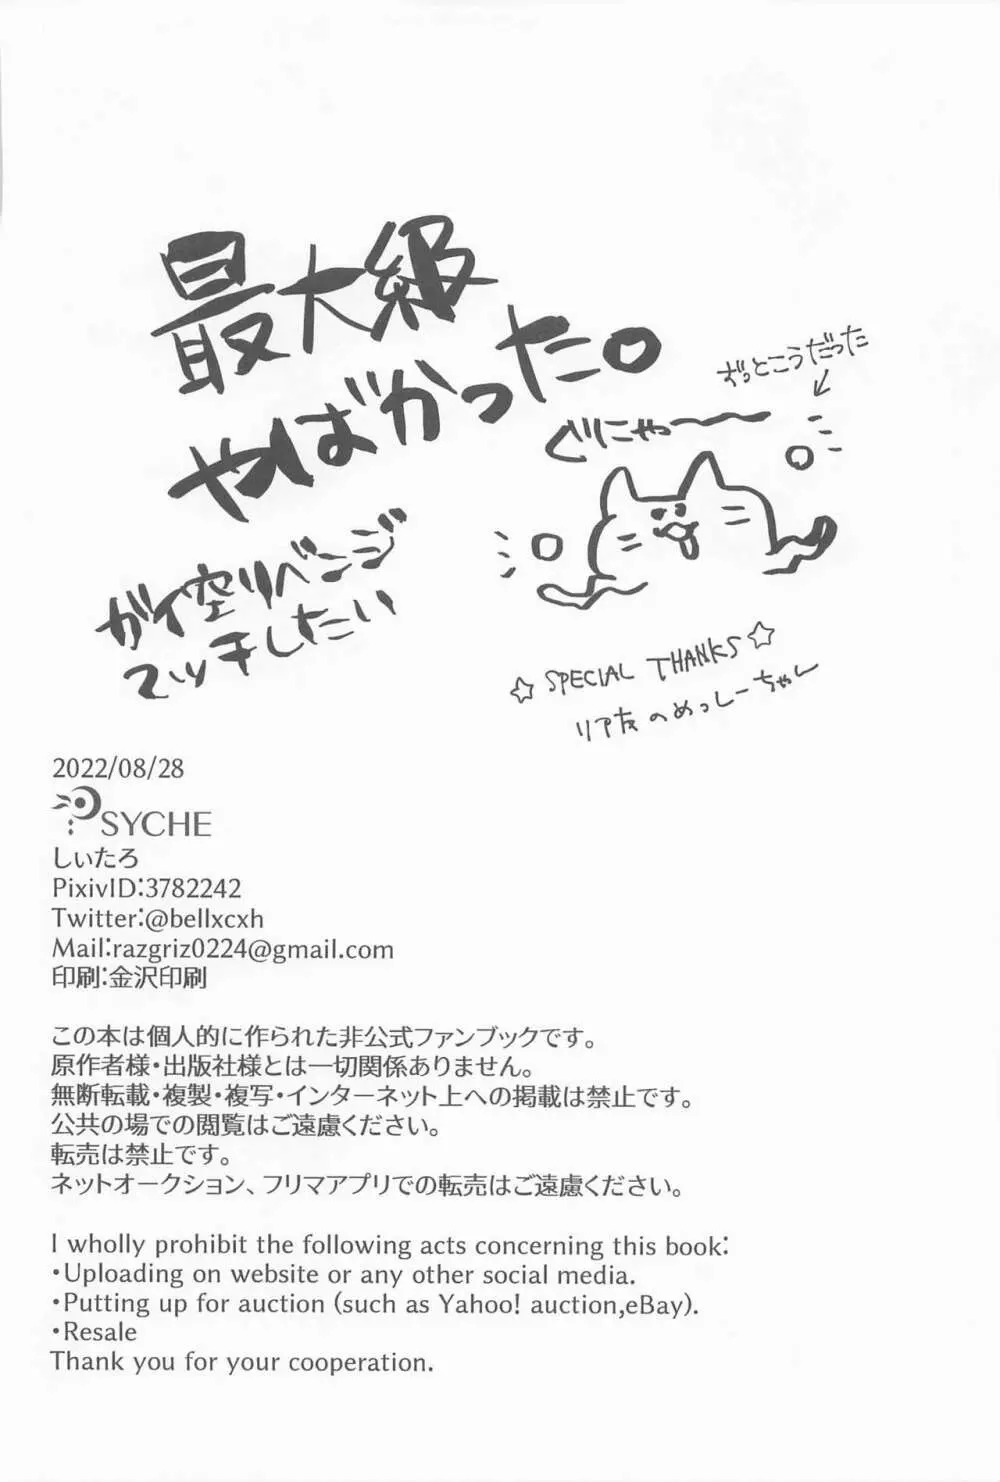 最大級
やばかった。
ずっとこうだった
ぐにゃ〜〜
ガイ空リベンジ
マッチしたい
☆SPECIAL THANKS☆
リア友のめっしーちゃん
2022/08/28
PSYCHE
しぃたろ
PixivID:3782242
Twitter:@bellxcxh
Mail:razgriz0224@gmail.com
印刷:金沢印刷
この本は個人的に作られた非公式ファンブックです。
原作者様・出版社様とは一切関係ありません。
無断転載・複製・複写・インターネット上への掲載は禁止です。
公共の場での閲覧はご遠慮ください。
転売は禁止です。
ネットオークション、フリマアプリでの転売はご遠慮ください。
I wholly prohibit the following acts concerning this book:
・Uploading on website or any other social media.
・Putting up for auction (such as Yahoo! auction,eBay).
・Resale
Thank you for your cooperation.